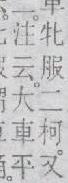 牝服二柯。又
注云。大車平